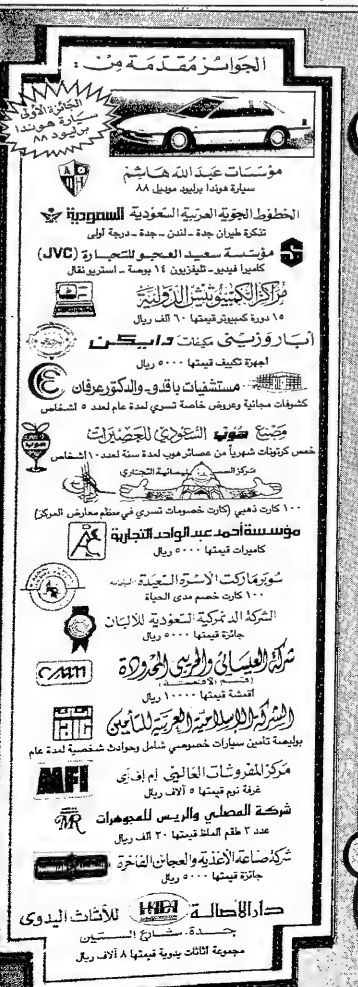 الجوائز مقدمة من :
الجائزة الأولى
سيارة هوندا
برليود ٨٨
مؤسسات عبد الله هاشم
سيارة هوندا برليود موديل ٨٨
الخطوط الجوية العربية السعودية السعودية
تذكرة طيران جدة - لندن - جدة - درجة أولى
مؤسسة سعيد العجو للتجارة (JVC)
كاميرا فيديو - تليفزيون ١٤ بوصة - استريو نقال
مراكز الكمبيوتر الدولية
١٥ دورة كمبيوتر قيمتها ٦٠ ألف ريال
أبار وزيني مكيفات دايكن
أجهزة تكييف قيمتها ٥٠٠٠ ريال
مستشفيات باقدو - والدكتور عرفان
كشوفات مجانية وعروض خاصة تسري لمدة عام لعدد ٥ أشخاص
مصنع هوب السعودي للعصيرات
هوب
خمس كرتونات شهرياً من عصائر هوب لمدة سنة لعدد ١٠ أشخاص
مركز السليمانية التجاري
١٠٠ كارت ذهبي (كارت خصومات تسري في معظم معارض المركز)
مؤسسة أحمد عبد الواحد التجارية
كاميرات قيمتها ٥٠٠٠ ريال
سوبر ماركت الأسرة السعيدة
١٠٠ كارت خصم مدى الحياة
الشركة الدنمركية السعودية للألبان
جائزة قيمتها ٥٠٠٠ ريال
شركة العيسائي والحربي المحدودة
(قسم الأقمشة)
أقمشة قيمتها ١٠٠٠٠ ريال
الشركة الإسلامية العربية للتأمين
بوليصة تأمين سيارات خصوصي شامل وحوادث شخصية لمدة عام
مركز المفروشات العالمي إم إف آي
MFI
غرفة نوم قيمتها ٥ آلاف ريال
شركة المصلي والريس للمجوهرات
MR
عدد ٣ طقم ألماظ قيمتها ٣٠ ألف ريال
شركة صناعة الأغذية والعجائن الفاخرة
جائزة قيمتها ٥٠٠٠ ريال
دار الأصالة للأثاث اليدوي
جدة - شارع الستين
مجموعة أثاثات يدوية قيمتها ٨ آلاف ريال